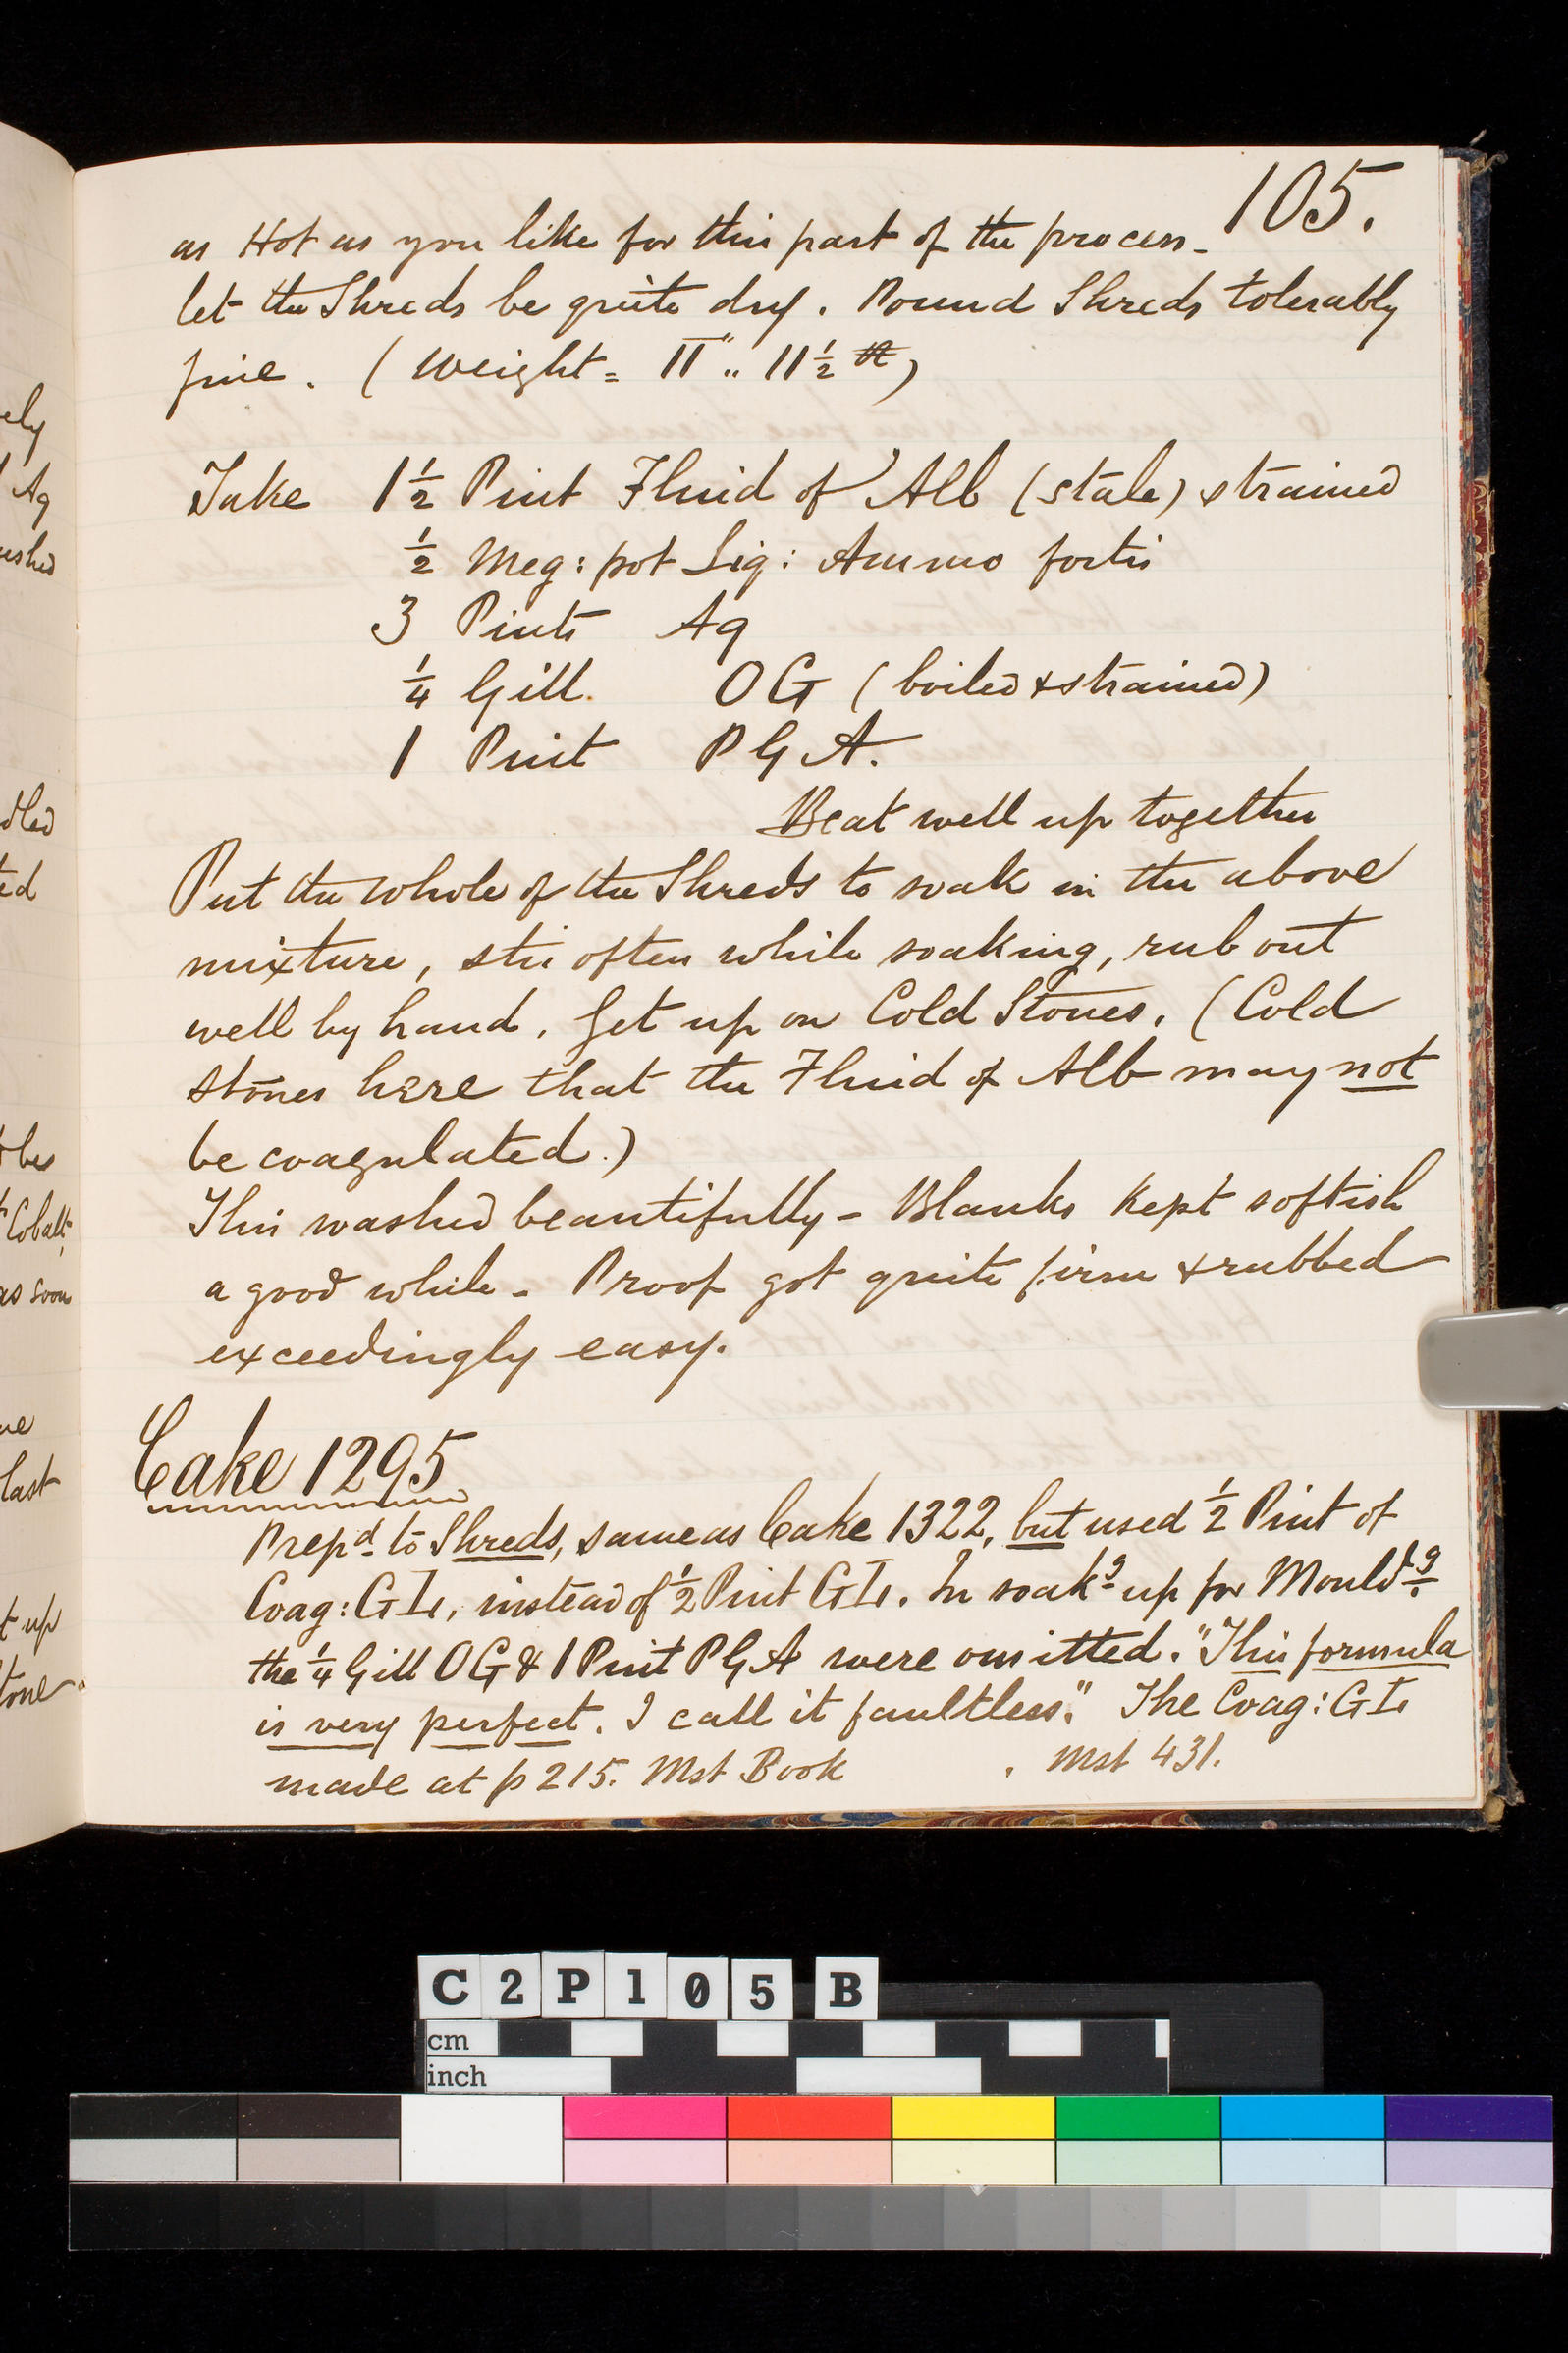 105.
as Hot as you like for this part of the process -
let the Shreds be quite dry. Pound Shreds tolerably
fine. (Weight = II " 11 1/2 ℔)
Take 1 1/2 Pint Fluid of Alb (stale) strained
1/2 Meg: pot Liq: Ammo fortis
3 Pints Aq
1/4 Gill OG (boiled & strained)
1 Pint PGA.
Beat well up together
Put the whole of the Shreds to soak in the above
mixture, stir often while soaking, rub out
well by hand. Get up on Cold Stones. (Cold
stones here that the Fluid of Alb may not
be coagulated.)
This washed beautifully - Blanks kept softish
a good while - Proof got quite firm & rubbed
exceedingly easy.
Cake 1295
Prepd to Shreds, same as Cake 1322, but used 1/2 Pint of
Coag: G I, instead of 1/2 Pint G I. In soakg up for Mouldg
the 1/4 Gill OG & 1 Pint PGA were omitted. "This formula
is very perfect. I call it faultless." The Coag: G I
made at p 215. Mst Book . Mst 431.
ely
Aq
ushed
dled
ted
Cobalt,
as soon
last
t up
tone
C2P105 B
cm
inch